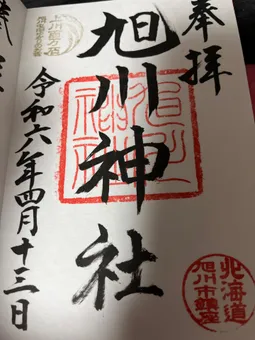 奉拝
旭川神社
旭川神社
北海道
旭川市鎮座
令和六年四月十三日